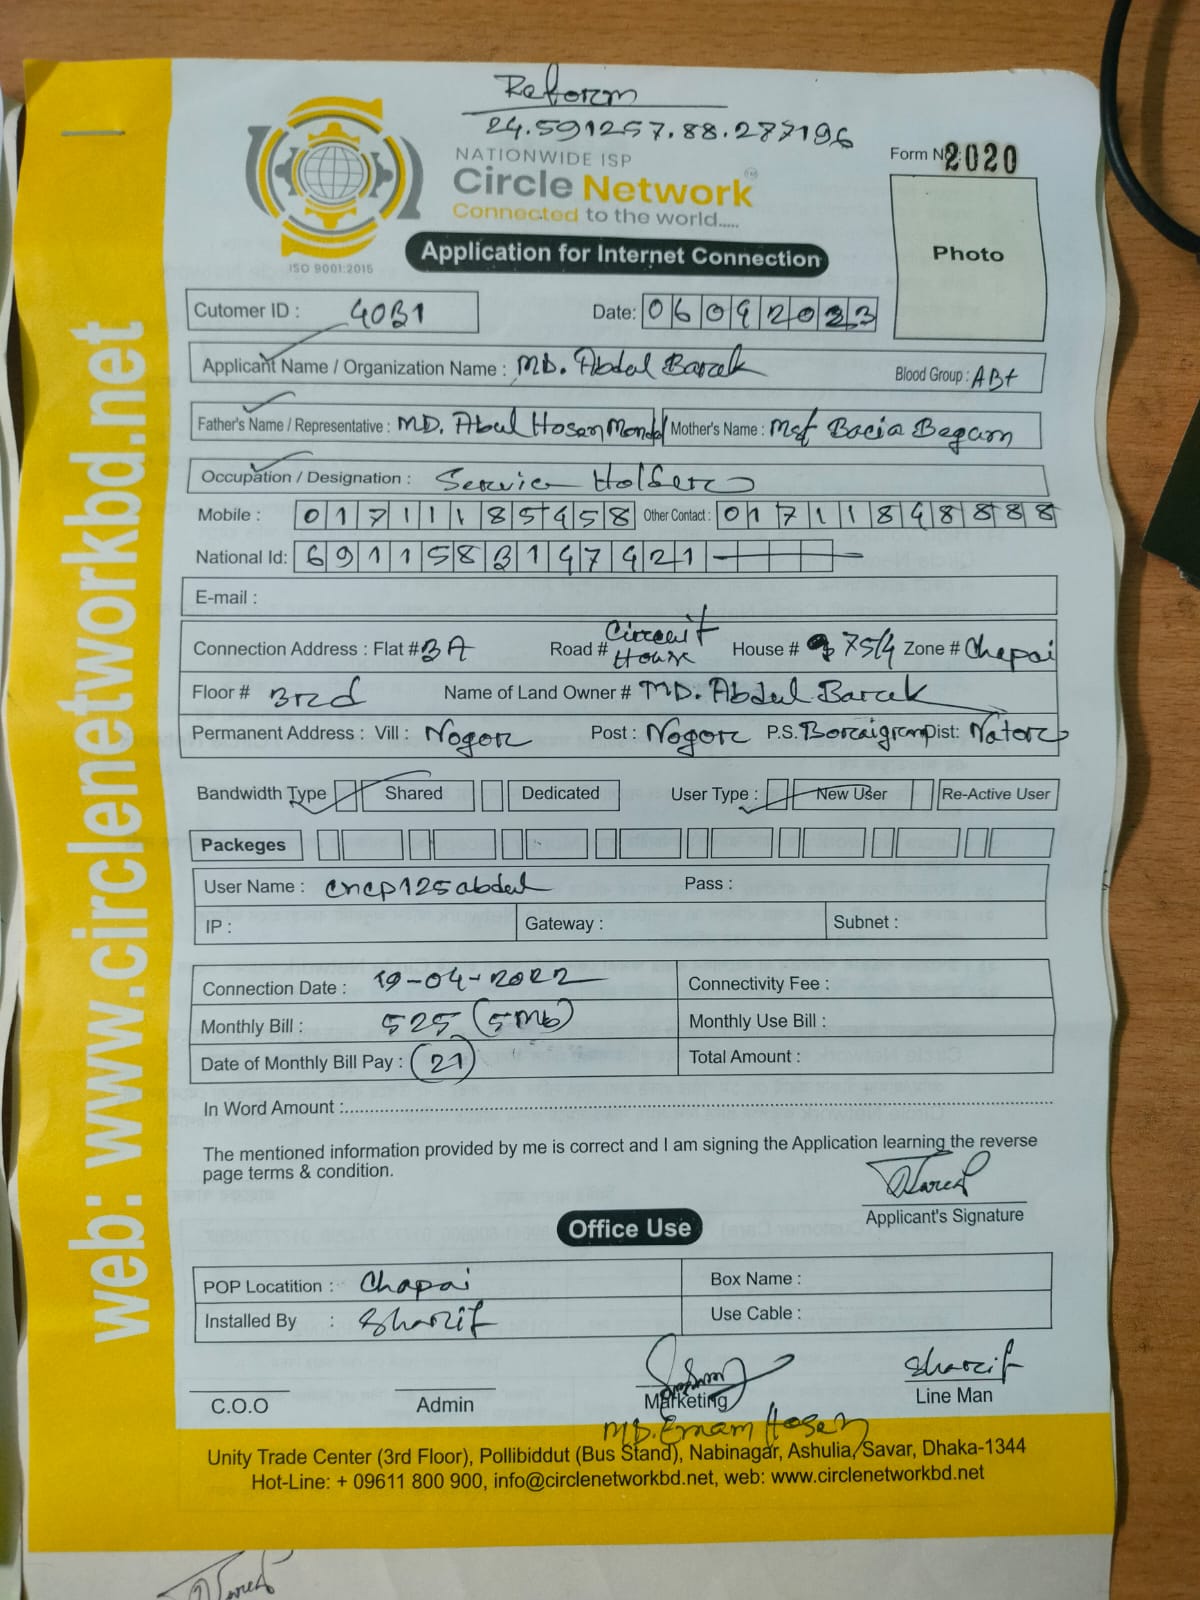 Reform
24.591257.88.277196
NATIONWIDE ISP
Form No: 2020
Circle Network
Connected to the world.....
ISO 9001:2015
Application for Internet Connection
Photo
Cutomer ID : 40B1 Date: 06092023
Applicant Name / Organization Name : MD. Abdul Barek Blood Group : AB+
Father's Name / Representative : MD. Abul Hosen Mondal Mother's Name : Mst Begam
Occupation / Designation : Service Holder
Mobile : 01711185458 Other Contact : 01711848888
National Id: 6911583147421
E-mail :
Connection Address : Flat # 3A Road # Circuit House House # 75/4 Zone # Chapai
Floor # 3rd Name of Land Owner # MD. Abdul Barek
Permanent Address : Vill : Nogor Post : Nogor P.S. Boraigram Dist: Nator
Bandwidth Type Shared Dedicated User Type : New User Re-Active User
Packeges
User Name : cncp125abdul Pass :
IP : Gateway : Subnet :
Connection Date : 19-04-2022 Connectivity Fee :
Monthly Bill : 525 (5Mb) Monthly Use Bill :
Date of Monthly Bill Pay : 21 Total Amount :
In Word Amount :
The mentioned information provided by me is correct and I am signing the Application learning the reverse
page terms & condition.
Applicant's Signature
Office Use
POP Locatition : Chapai Box Name :
Installed By : Sharif Use Cable :
Sharif
C.O.O Admin Marketing Line Man
MD. Emam Hosen
Unity Trade Center (3rd Floor), Pollibiddut (Bus Stand), Nabinagar, Ashulia, Savar, Dhaka-1344
Hot-Line: + 09611 800 900, info@circlenetworkbd.net, web: www.circlenetworkbd.net
web: www.circlenetworkbd.net